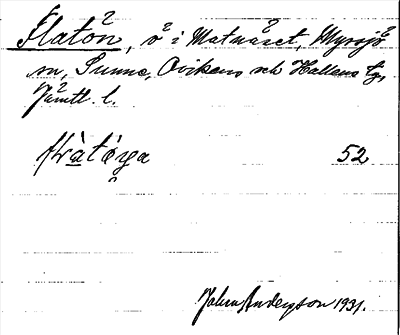 Flatön, ö i Matnäset, Myssjö
sn, Sunne, Ovikens och Hallens tg,
Jämtl. l.
52
John Anderson 1931.